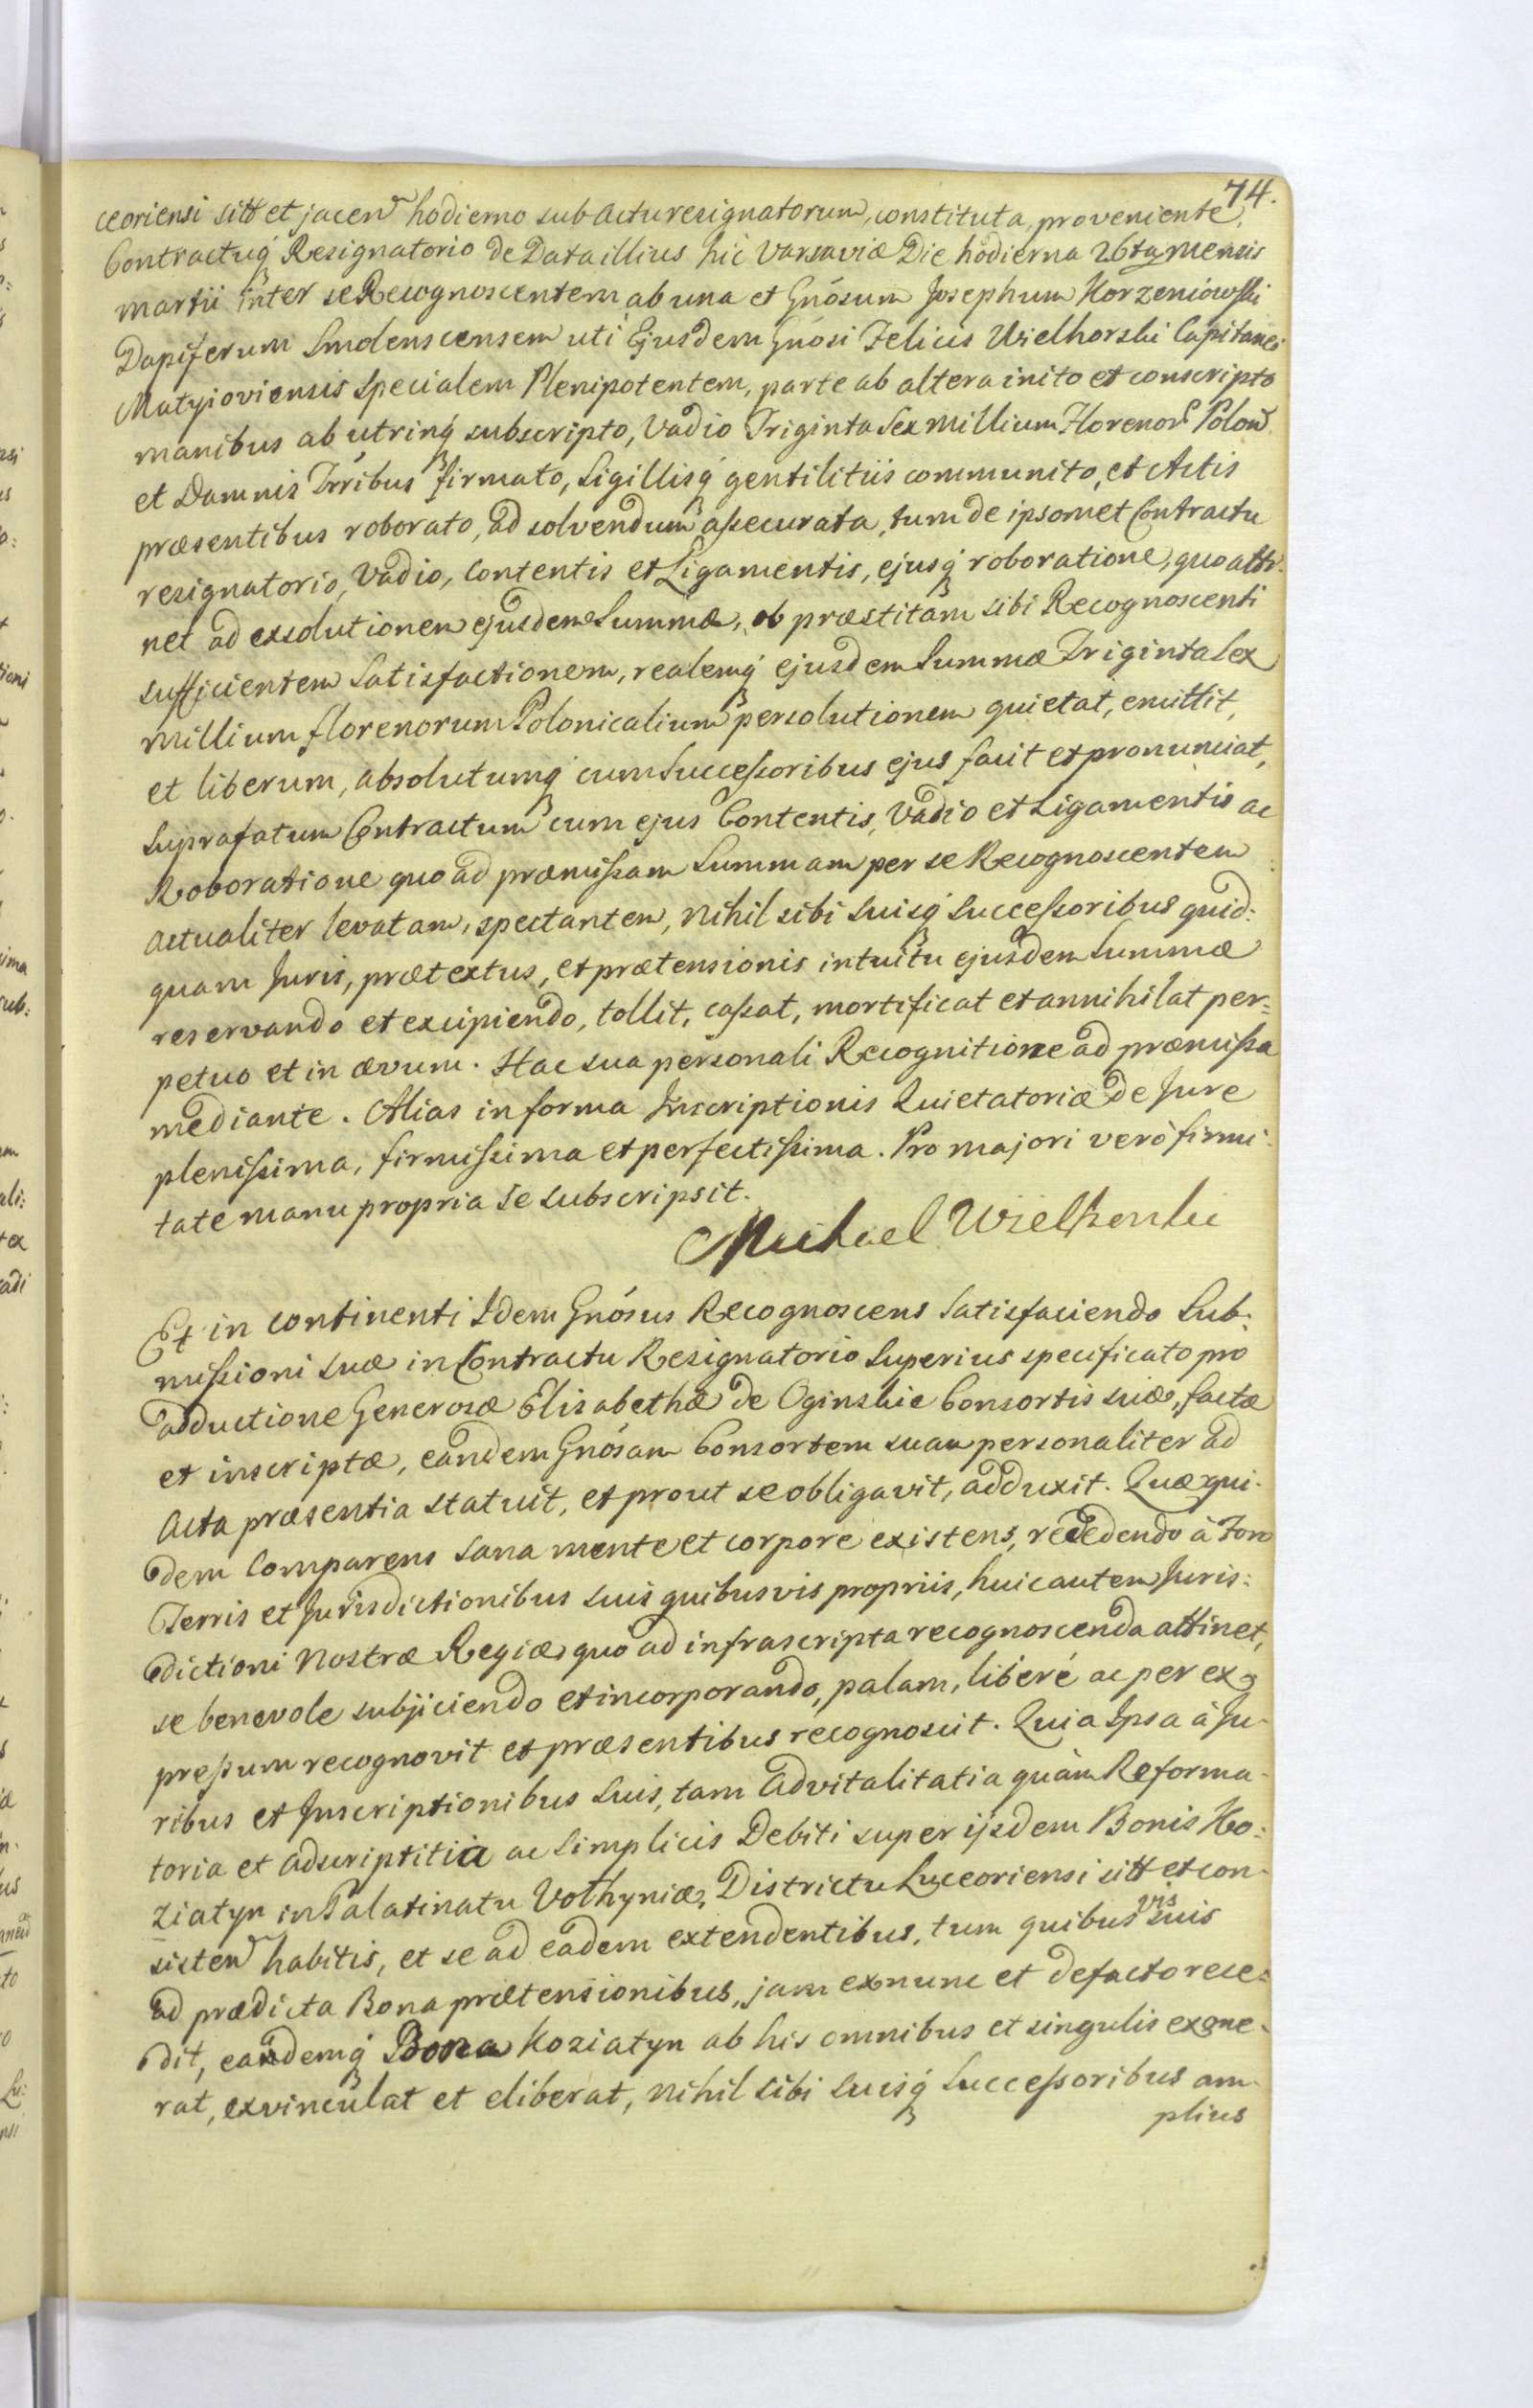 74.
ceoriensi sitt et jacen hodierno sub Actu resignatorum, constituta, proveniente,
Contractuq́ Resignatorio de Data illius hic Varsaviæ Die hodierna 26ta mensis
martii inter se Recognoscentem ab una et Gnósum Josephum Korzeniowski
Dapiferum Smolenscensem uti Ejusdem Gnósi Felicis Wielhorski Capitanei
Matyioviensis specialem Plenipotentem, parte ab altera inito et conscripto
manibus ab utrinq́ subscripto, Vadio Triginta Sex Millium Florenor Polon
et Damnis Trribus firmato, Sigillisq́ gentilitiis communito, et Actis
præsentibus roborato, ad solvendum aſsecurata, tum de ipsomet Contractu
resignatorio, Vadio, Contentis et Ligamentis, ejusq́ roboratione, quo atti-
net ad exsolutionem ejusdem Summæ, ob præstitam sibi Recognoscenti
sufficientem Satisfactionem, realemq́ ejusdem Summæ Triginta Sex
Millium florenorum Polonicalium persolutionem quietat, emittit,
et liberum, absolutumq́ cum Succeſsoribus ejus facit et pronunciat,
Suprafatum Contractum cum ejus Contentis, Vadio et Ligamentis ac
Roboratione quo ad præmiſsam Summam per se Recognoscentem
actualiter levatam, spectantem, Nihil sibi Suisq́ Succeſsoribus quid:
quam Juris, prætextus, et prætensionis intuitu ejusdem Summæ
reservando et excipiendo, tollit, caſsat, mortificat et annihilat per=
petuo et in ævum. Hac sua personali Recognitione ad præmiſsa
mediante. Alias in forma Inscriptionis Quietatoriæ de Jure
pleniſsima, firmiſsima et perfectiſsima. Pro majori verò firmi-
tate manu propria se subscripsit.
Michael Wielhorski
Et in continenti Idem Gnósus Recognoscens Satisfaciendo Sub:
miſsioni suæ in Contractu Resignatorio Superius specificato pro
adductione Generosæ Elisabethæ de Oginskie Consortis suæ, factæ
et inscriptæ, eandem Gnósam Consortem suam personaliter ad
Acta præsentia statuit, et prout se obligavit, adduxit. Quæ qui-
dem Comparens sana mente et corpore existens, recedendo à Foro
Terris et Jurisdictionibus suis quibusvis propriis, huic autem Juris:
dictioni Nostræ Regiæ quo ad infrascripta recognoscenda attinet,
se benevole subjiciendo et incorporando, palam, liberé ac per ex=
preſsum recognovit et præsentibus recognoscit. Quia Ipsa à Ju-
ribus et Inscriptionibus Suis, tam Advitalitatia quàm Reforma-
toria et adscriptitia ac Simplicis Debiti super ijsdem Bonis Ko:
ziatyn in Palatinatu Volhyniæ, Districtu Luceoriensi sitt et con-
sisten habitis, et se ad eadem extendentibus, tum quibusvis suis
ad prædicta Bona prætensionibus, jam exnunc et defacto rece=
dit, eandemq́ Bona Koziatyn ab his omnibus et singulis exone-
rat, exvinculat et eliberat, Nihil sibi Suisq́ Succeſsoribus am-
plius